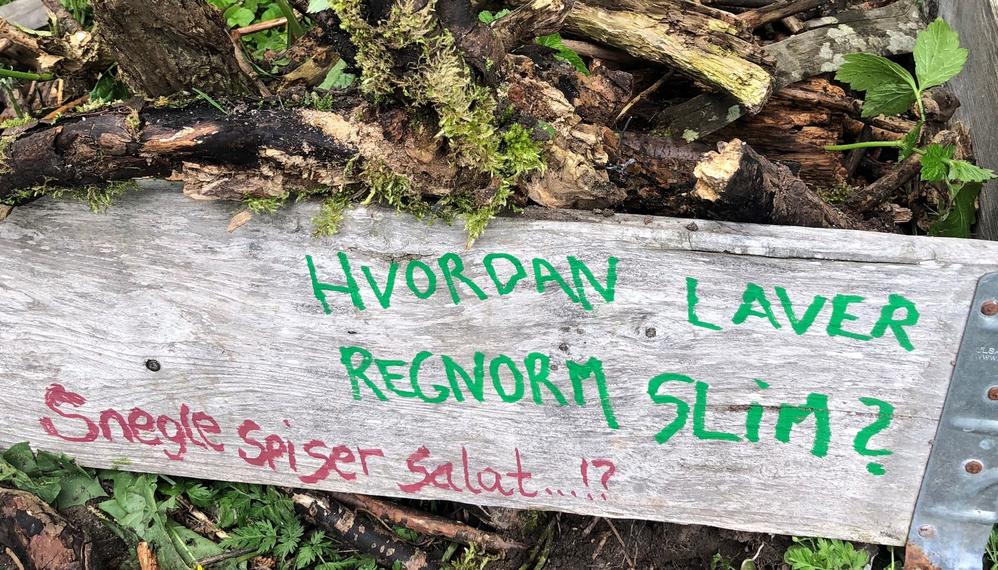 HVORDAN LAVER
REGNORM SLiM?
Snegle spiser salat....!?